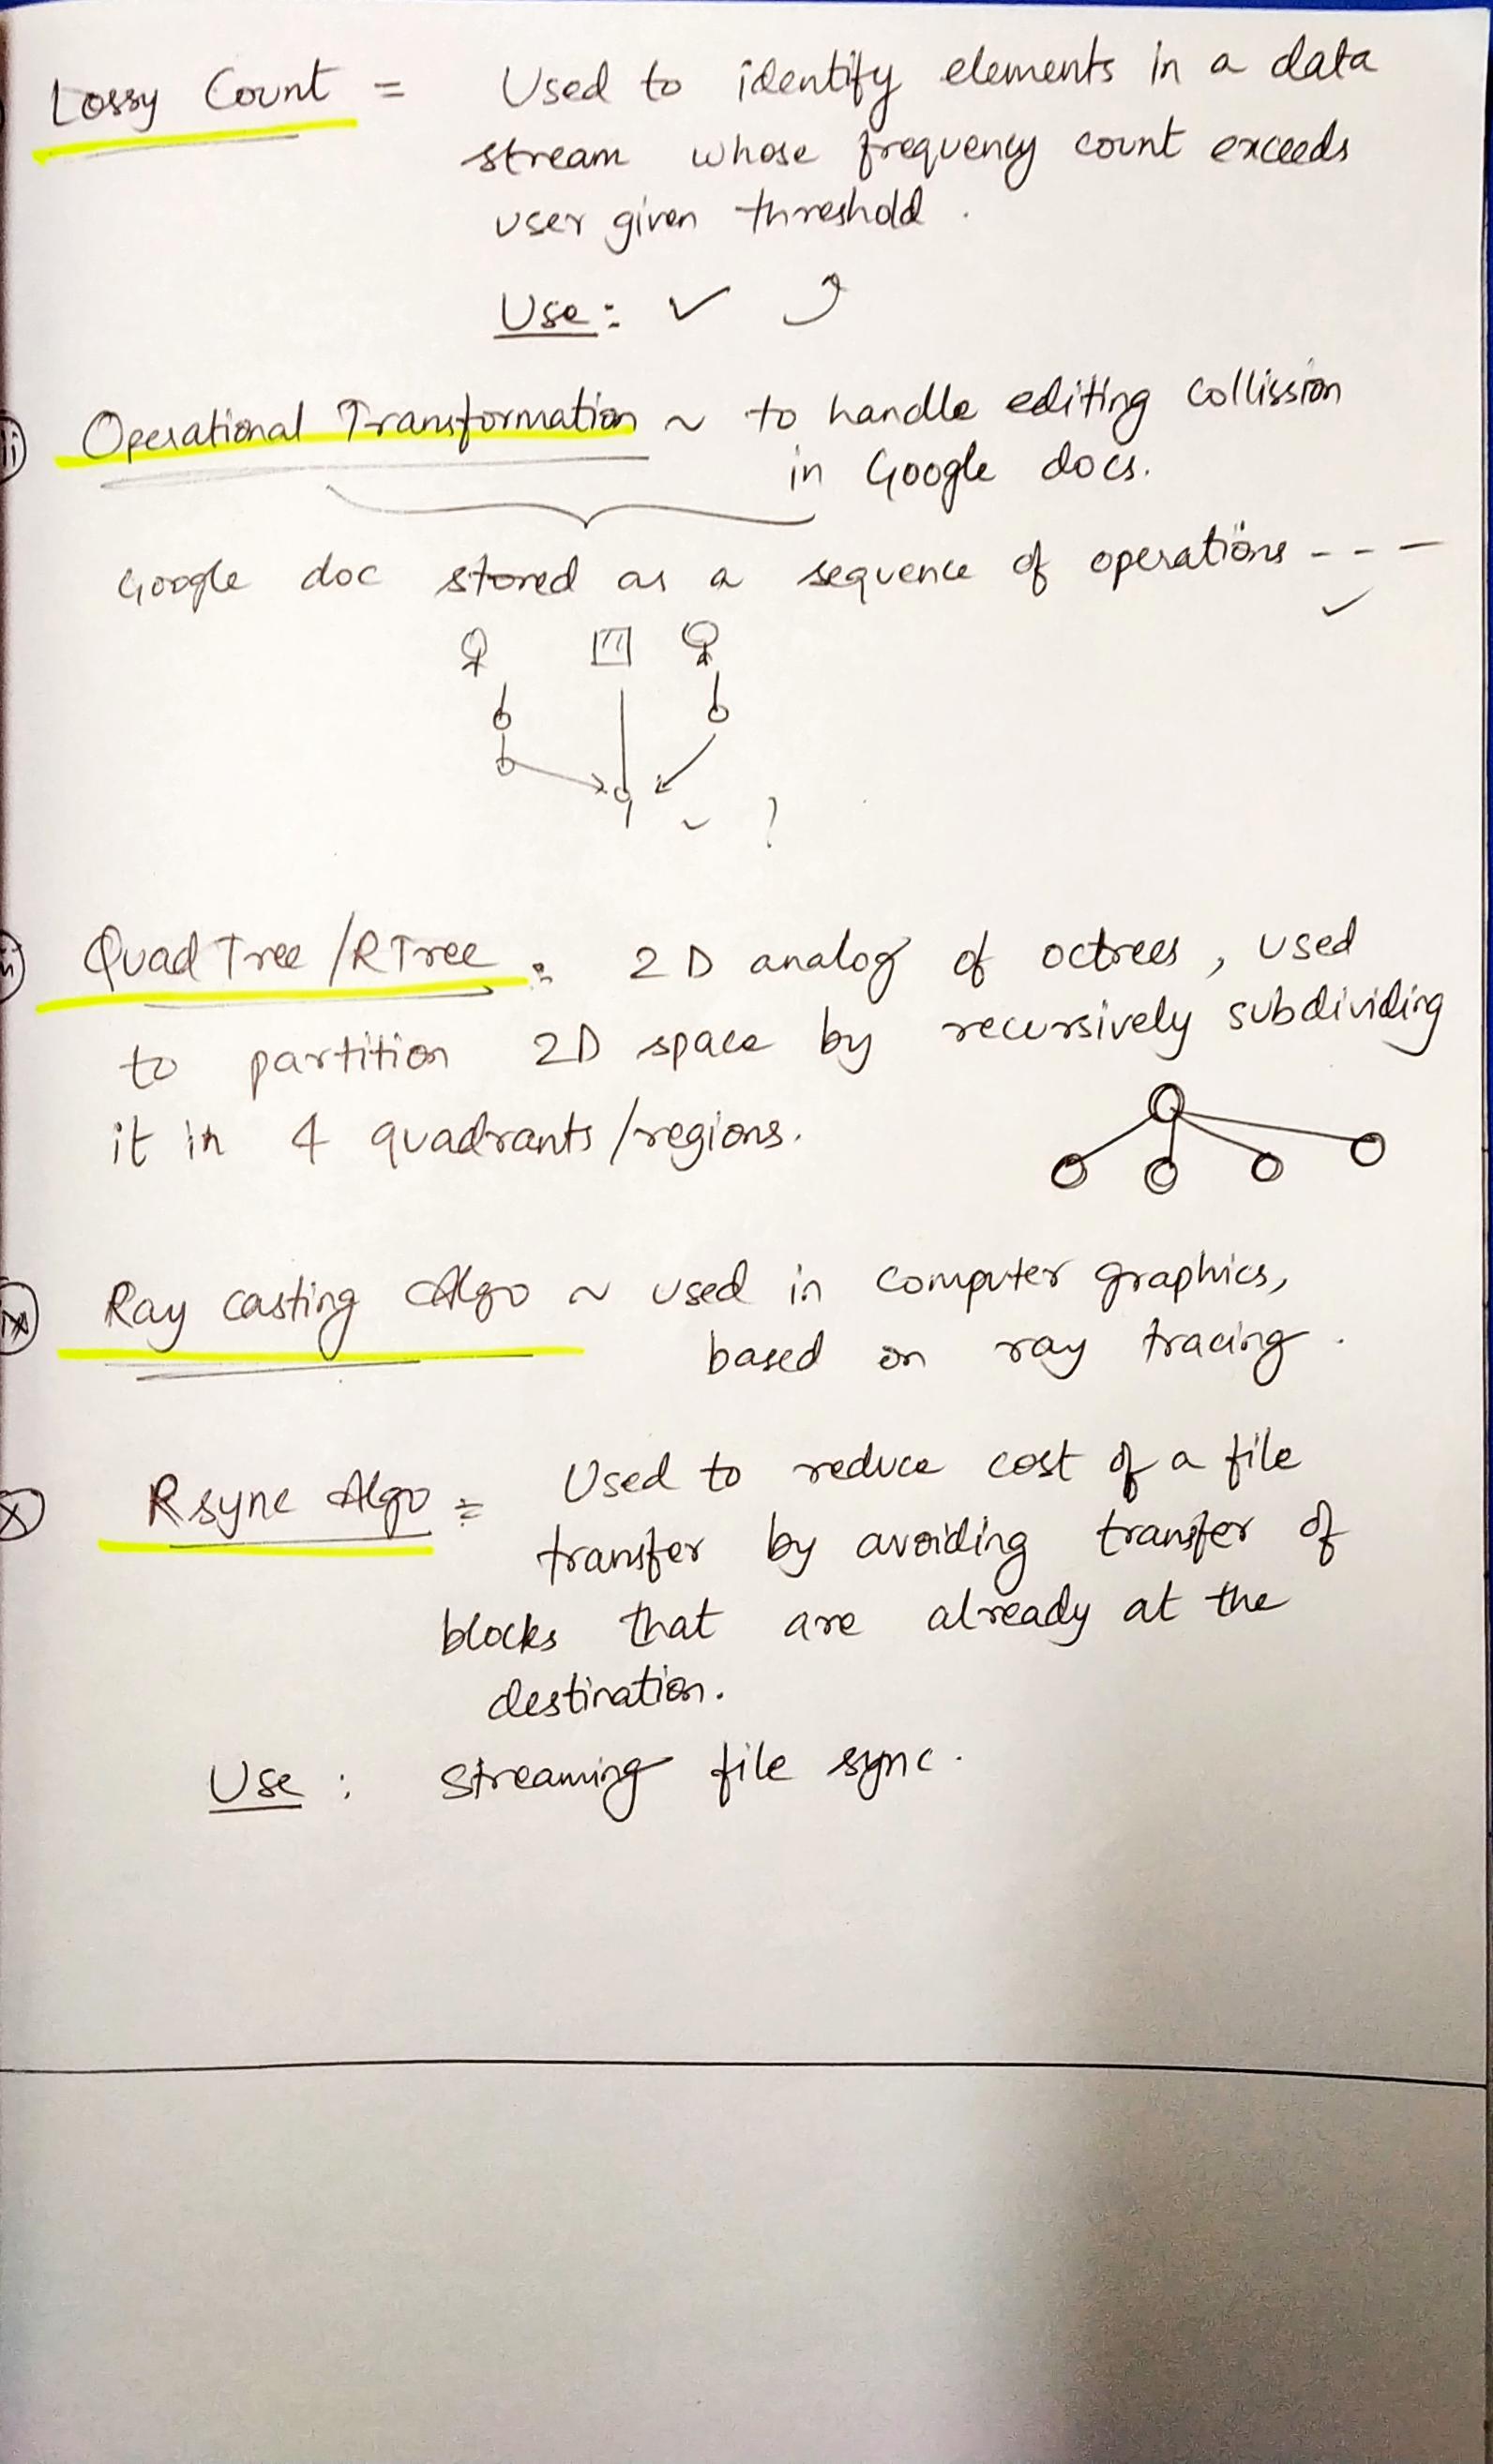 Lossy Count = Used to identify elements in a data
stream whose frequency count exceeds
user given threshold .
Use :
Operational Transformation ~ to handle editing collission
in Google docs.
Google doc stored as a sequence of operations - - -
?
Quad Tree /R Tree : 2D analog of octrees , used
to partition 2D space by recursively subdividing
it in 4 quadrants /regions.
Ray casting Algo ~ used in computer graphics,
based on ray tracing .
Rsync Algo = Used to reduce cost of a file
transfer by avoiding transfer of
blocks that are already at the
destination.
Use : Streaming file sync .